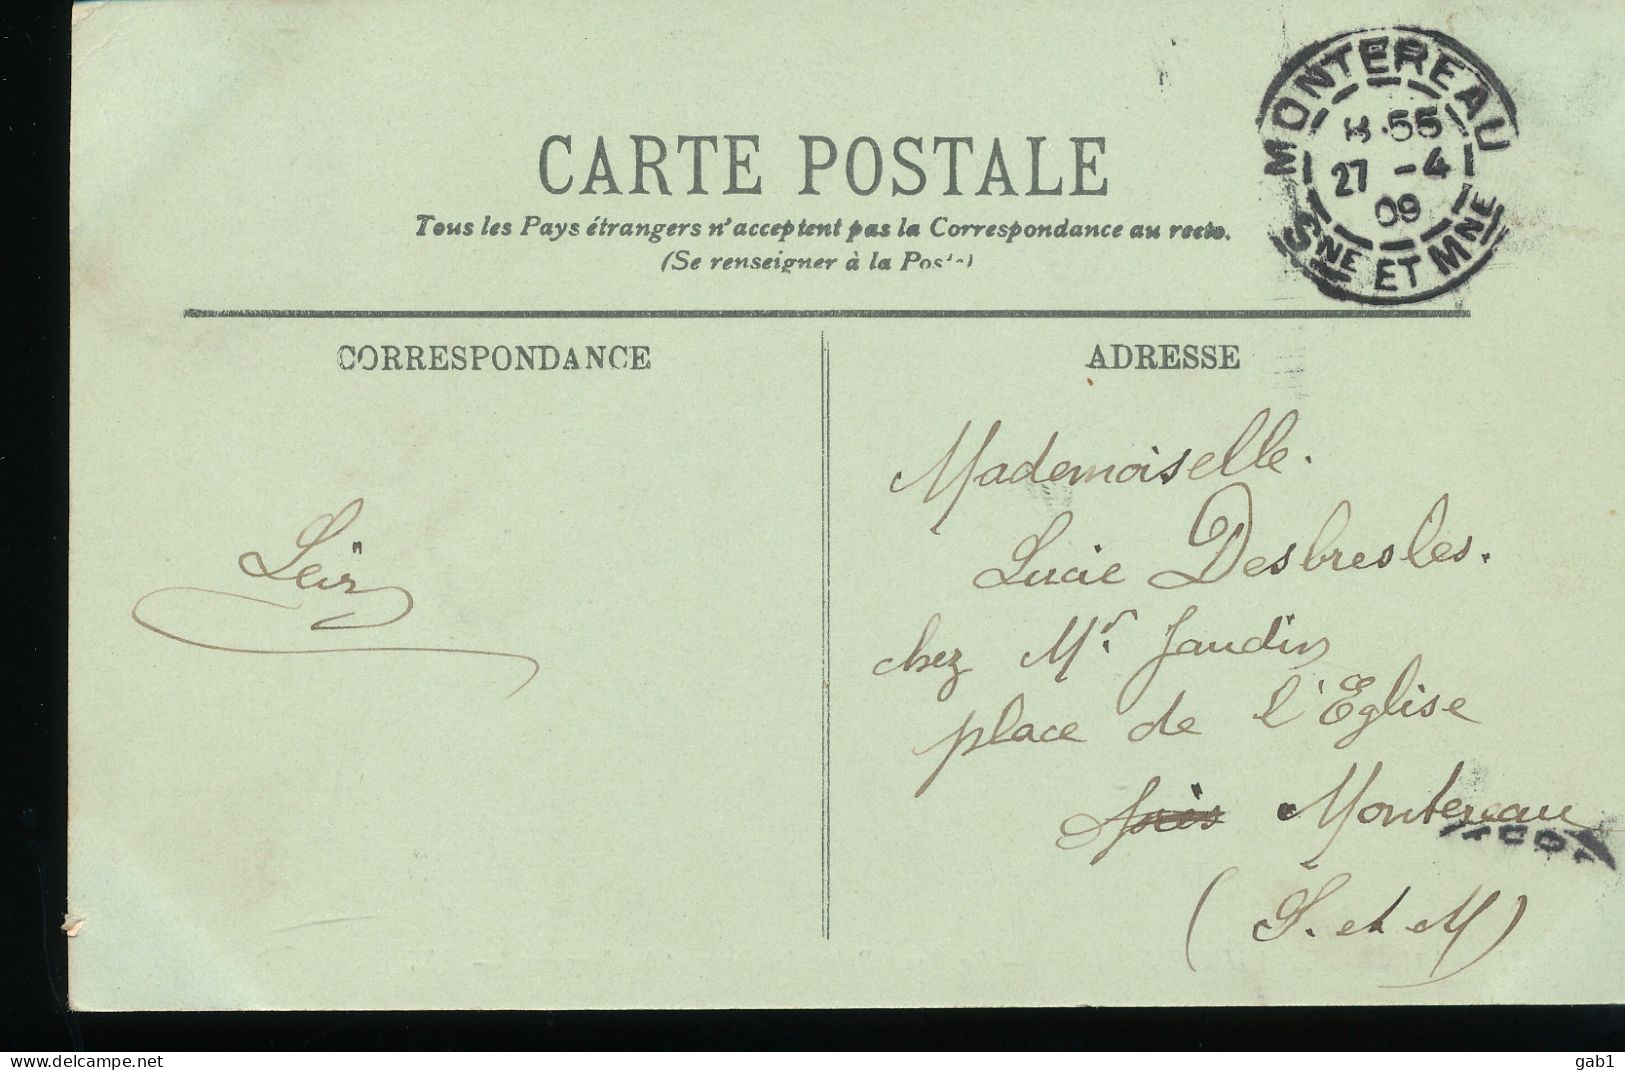 CARTE POSTALE
Tous les Pays étrangers n'acceptent pas la Correspondance au recto.
(Se renseigner à la Poste)
MONTEREAU
55
27 -4
09
SNE ET MNE
CORRESPONDANCE
ADRESSE
Mademoiselle.
Lucie Desbresles.
chez Mr. Jaudin
place de l'Eglise
Montereau
(S. et M)
delcampe.net
gab1